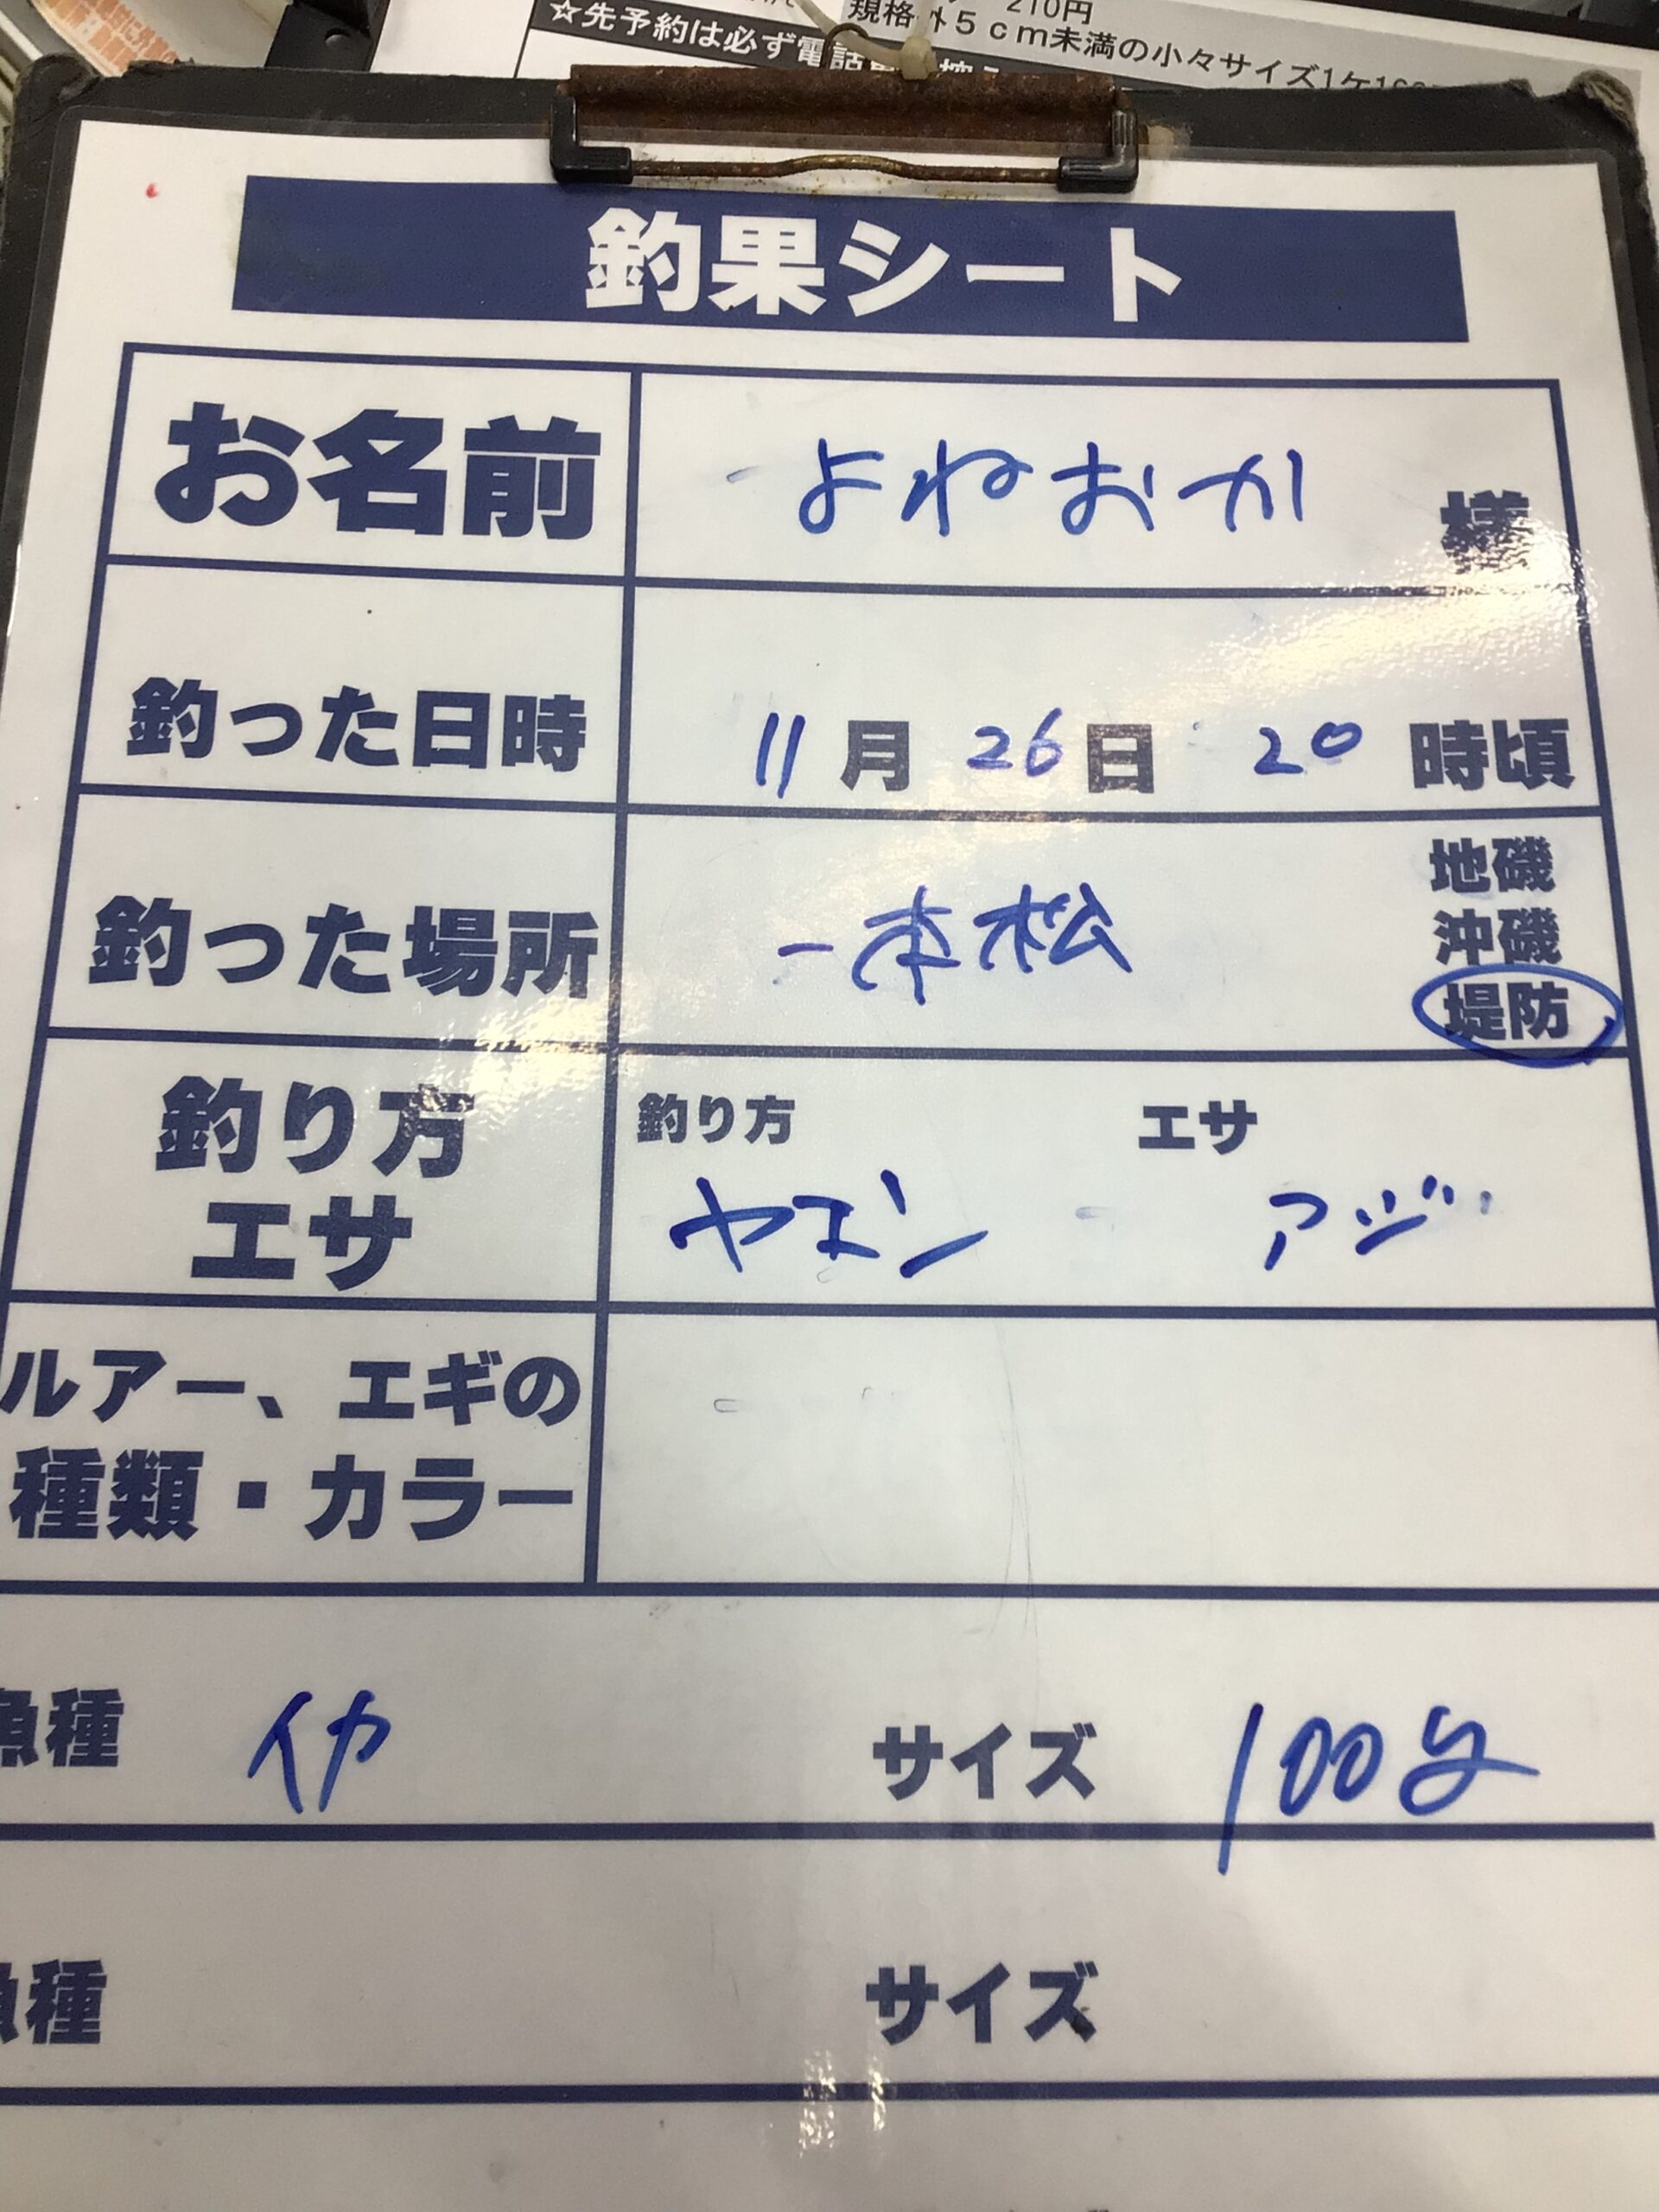 210円
規格外5cm未満の小々サイズ1ケ
☆先予約は必ず電話
釣果シート
お名前 よねおか 様
釣った日時 11月26日 20時頃
釣った場所 一本松 地磯
沖磯
堤防
釣り方 釣り方 エサ
エサ ヤエン アジ
ルアー、エギの
種類・カラー
魚種 イカ サイズ 100g
魚種 サイズ